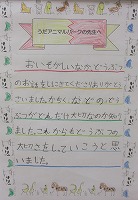 うだアニマルパークの先生へ
おいそがしいなかどうぶつ
のお話をしてくださりありがとうご
ざいましたからく などのどうぶ
つがどんな 大じなのか分かり
ました。これからもどうぶつの
大じさをしていこうと思
いました。